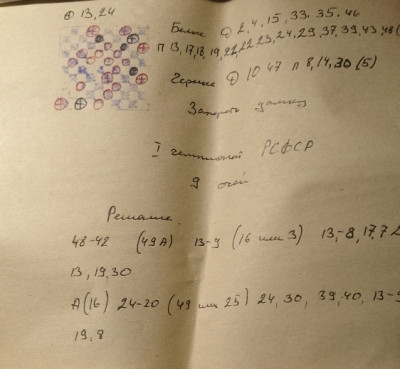 Ф 13,24
Белые Д 2,4,15,33,35,46
П 13,17,18,19,21,22,23,24,29,37,39,43,48(
Черные Д 10 47 п 8,14,30 (5)
Запереть дамку
I чемпионат РСФСР
9 очей
Решение
48-42 (49А) 13-9 (16 или 3) 13-8, 17, 7
13, 19, 30
А(16) 24-20 (49 или 25) 24, 30, 39, 40, 13-9
19, 8